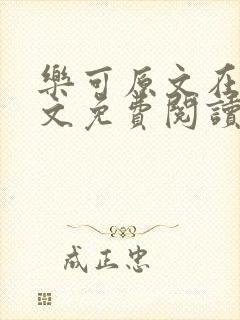 樂可原文在
文免費閱讀
成正忠